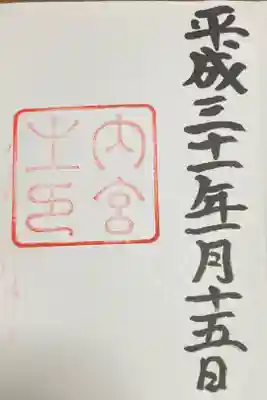 平成三十一年一月十五日
内宮
之印